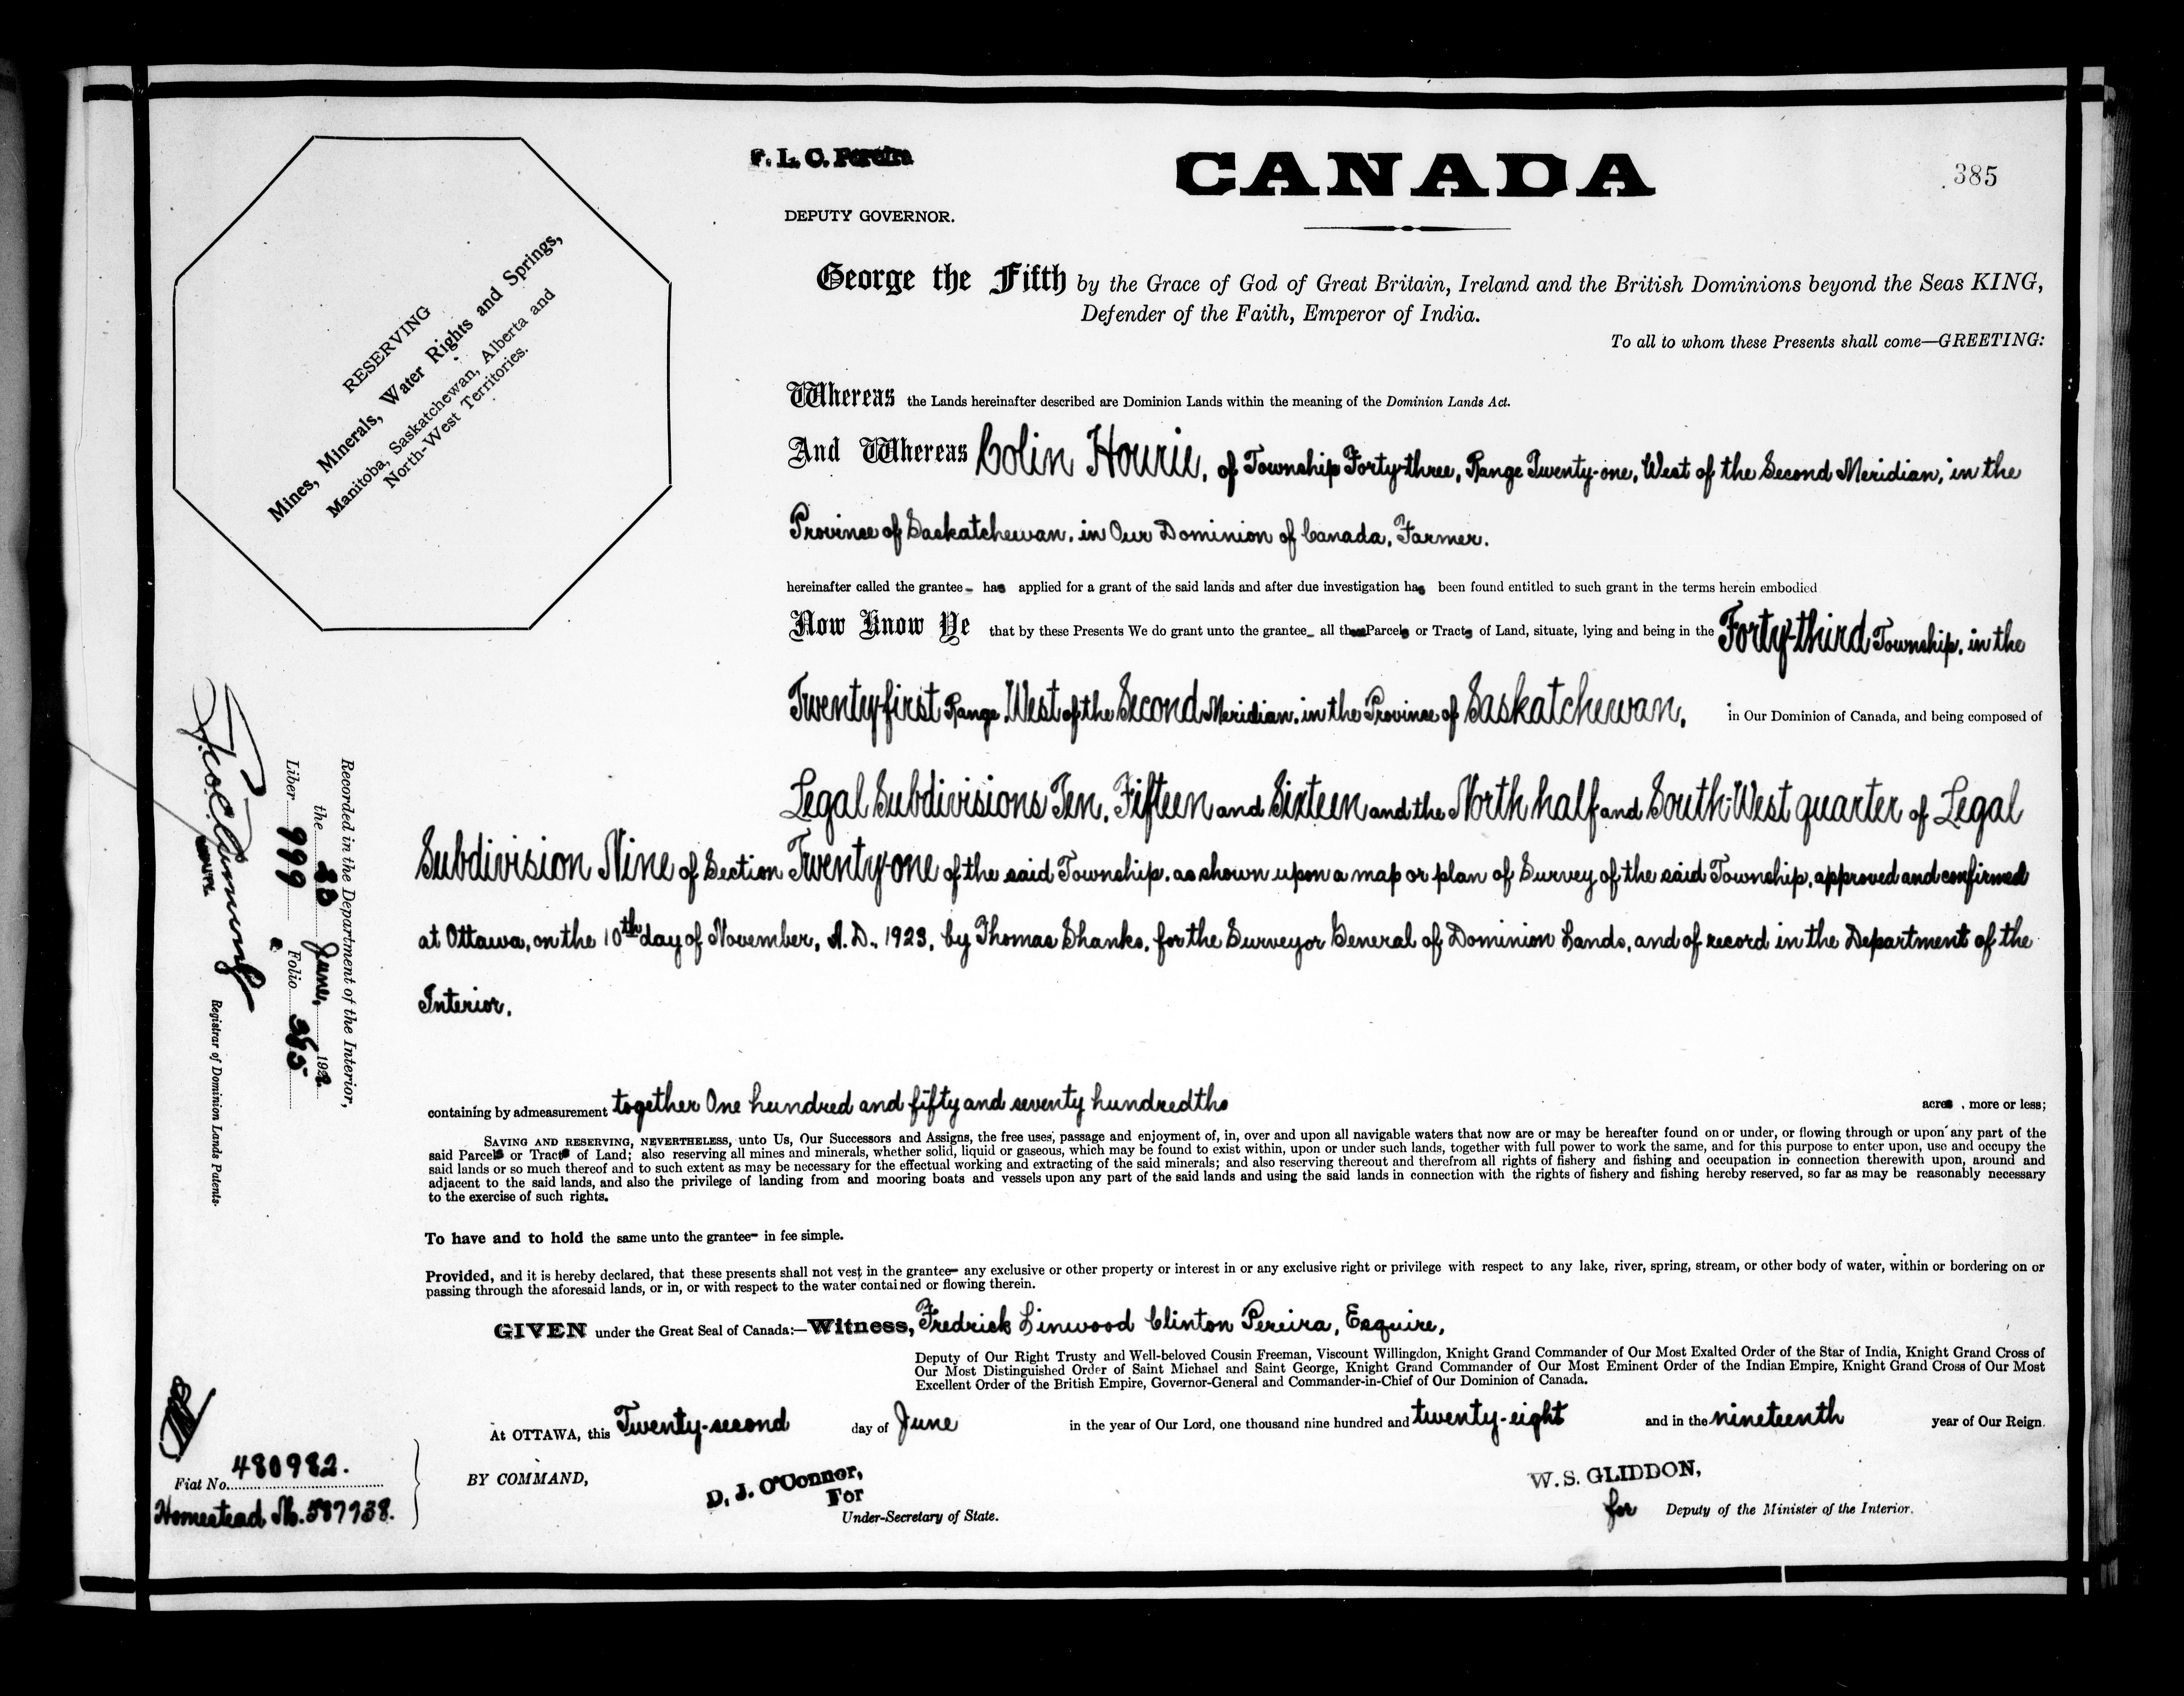 F. L. C. Pereira
DEPUTY GOVERNOR.
CANADA
385
RESERVING
Mines, Minerals, Water Rights and Springs,
Manitoba, Saskatchewan, Alberta and
North-West Territories.
George the Fifth by the Grace of God of Great Britain, Ireland and the British Dominions beyond the Seas KING,
Defender of the Faith, Emperor of India.
To all to whom these Presents shall come—GREETING:
Whereas the Lands hereinafter described are Dominion Lands within the meaning of the Dominion Lands Act.
And Whereas Colin Hourie, of Township Forty-three, Range Twenty-one, West of the Second Meridian, in the
Province of Saskatchewan, in Our Dominion of Canada, Farmer.
hereinafter called the grantee has applied for a grant of the said lands and after due investigation has been found entitled to such grant in the terms herein embodied
Now Know Ye that by these Presents We do grant unto the grantee all those Parcels or Tracts of Land, situate, lying and being in the Forty-third Township, in the
Twenty-first Range West of the Second Meridian, in the Province of Saskatchewan, in Our Dominion of Canada, and being composed of
Legal Subdivisions Ten, Fifteen and Sixteen and the North half and South-West quarter of Legal
Subdivision Nine of Section Twenty-one of the said Township, as shown upon a map or plan of Survey of the said Township, approved and confirmed
at Ottawa, on the 10th day of November, A.D., 1923, by Thomas Shanks, for the Surveyor General of Dominion Lands, and of record in the Department of the
Interior.
containing by admeasurement together One hundred and fifty and seventy hundredths acres, more or less;
SAVING AND RESERVING, NEVERTHELESS, unto Us, Our Successors and Assigns, the free uses, passage and enjoyment of, in, over and upon all navigable waters that now are or may be hereafter found on or under, or flowing through or upon any part of the
said Parcels or Tracts of Land; also reserving all mines and minerals, whether solid, liquid or gaseous, which may be found to exist within, upon or under such lands, together with full power to work the same, and for this purpose to enter upon, use and occupy the
said lands or so much thereof and to such extent as may be necessary for the effectual working and extracting of the said minerals; and also reserving thereout and therefrom all rights of fishery and fishing and occupation in connection therewith upon, around and
adjacent to the said lands, and also the privilege of landing from and mooring boats and vessels upon any part of the said lands and using the said lands in connection with the rights of fishery and fishing hereby reserved, so far as may be reasonably necessary
to the exercise of such rights.
To have and to hold the same unto the grantee in fee simple.
Provided, and it is hereby declared, that these presents shall not vest in the grantee any exclusive or other property or interest in or any exclusive right or privilege with respect to any lake, river, spring, stream, or other body of water, within or bordering on or
passing through the aforesaid lands, or in, or with respect to the water contained or flowing therein.
GIVEN under the Great Seal of Canada:—Witness, Fredrick Linwood Clinton Pereira, Esquire,
Deputy of Our Right Trusty and Well-beloved Cousin Freeman, Viscount Willingdon, Knight Grand Commander of Our Most Exalted Order of the Star of India, Knight Grand Cross of
Our Most Distinguished Order of Saint Michael and Saint George, Knight Grand Commander of Our Most Eminent Order of the Indian Empire, Knight Grand Cross of Our Most
Excellent Order of the British Empire, Governor-General and Commander-in-Chief of Our Dominion of Canada.
At OTTAWA, this Twenty-second day of June in the year of Our Lord, one thousand nine hundred and twenty-eight and in the nineteenth year of Our Reign.
BY COMMAND,
D. J. O'Connor,
For
Under-Secretary of State.
W. S. GLIDDON,
for Deputy of the Minister of the Interior.
Recorded in the Department of the Interior,
the June, 1928.
Liber 999 Folio 385
Registrar of Dominion Lands Patents.
Fiat No. 480982.
Homestead No. 587738.